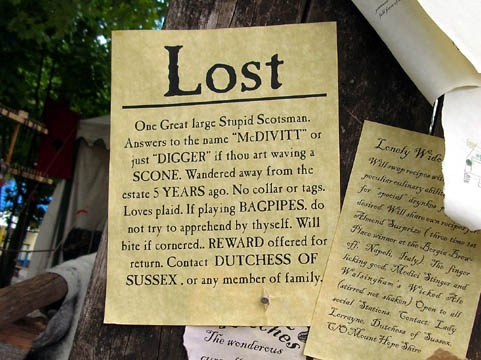 Lost
One Great large Stupid Scotsman.
Answers to the name "McDIVITT" or
just "DIGGER" if thou art waving a
SCONE. Wandered away from the
estate 5 YEARS ago. No collar or tags.
Loves plaid. If playing BAGPIPES, do
not try to apprehend by thyself. Will
bite if cornered.. REWARD offered for
return. Contact DUTCHESS OF
SUSSEX , or any member of family.
Lonely
Will swap recipes
peculiar culinary
for special
desired. Will share own
Almond Surprise ( three time 1st
Place winner at the Borgia Brew
off, Napoli, Italy) The finger
licking good, Medici Stinger and
Walsingham's Wicked Ale
(stirred not shaken) Open to all
social Stations. Contact: Lady
Lorrayne, Dutchess of Sussex.
C/O Mount Hope Shire
The wonderous